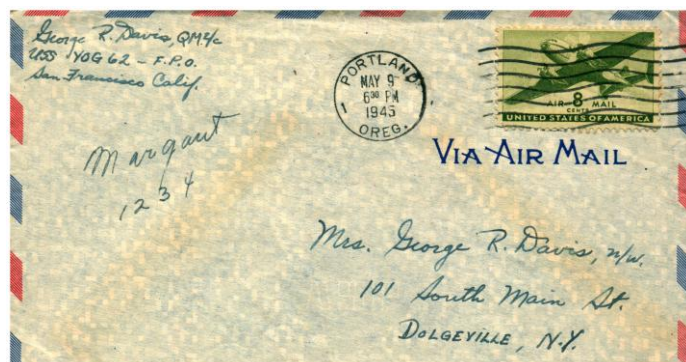 George R. Davis, QM2/c
USS YOG 62 - F.P.O.
San Francisco Calif.
PORTLAND
MAY 9
6³⁰ PM
1945
1
OREG.
AIR 8 MAIL
CENTS
UNITED STATES OF AMERICA
VIA AIR MAIL
Margaut
1234
Mrs. George R. Davis, n/w.
101 South Main St.
DOLGEVILLE, N.Y.